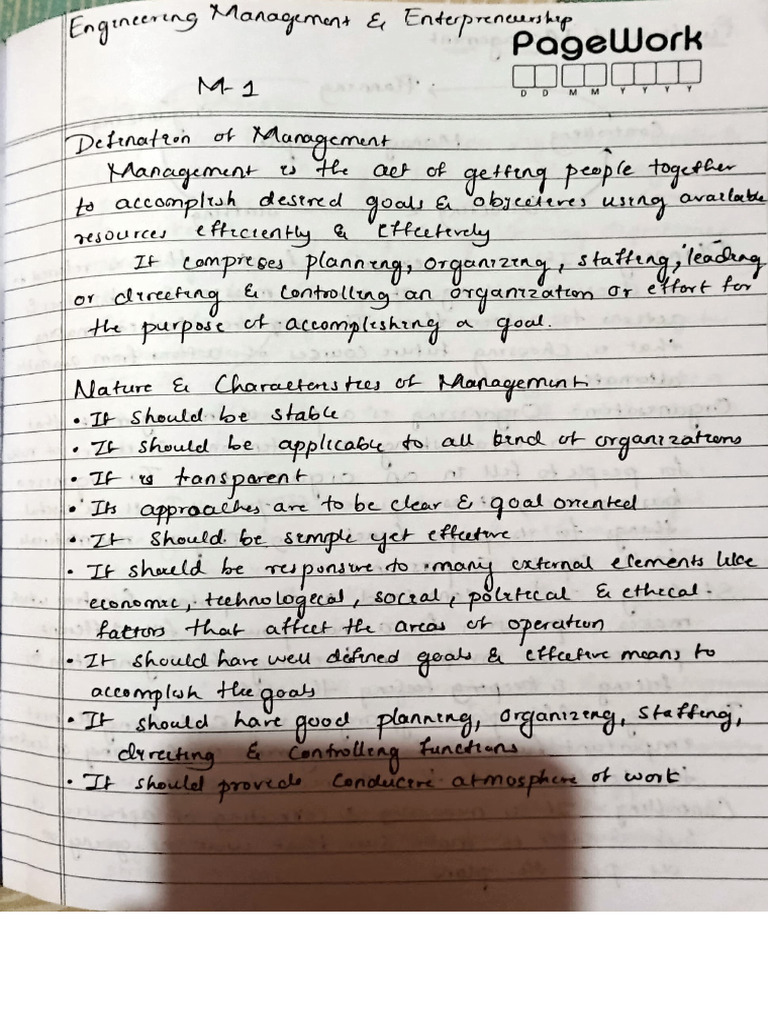 Engineering Management & Enterpreneurship
PageWork
D D M M Y Y Y Y
M-1
Defination of Management
Management is the act of getting people together
to accomplish desired goals & objectives using available
resources efficiently & Effectively
It comprises planning, organizing, staffing, leading
or directing & controlling an organization or effort for
the purpose of accomplishing a goal.
Nature & Characteristics of Management
• It should be stable
• It should be applicable to all kind of organizations
• It is transparent
• Its approaches are to be clear & goal oriented
• It should be simple yet effective
• It should be responsive to many external elements like
economic, technological, social, political & ethical
factors that affect the areas of operation
• It should have well defined goals & effective means to
accomplish the goals
• It should have good planning, organizing, staffing,
directing & controlling functions
• It should provide conducive atmosphere of work